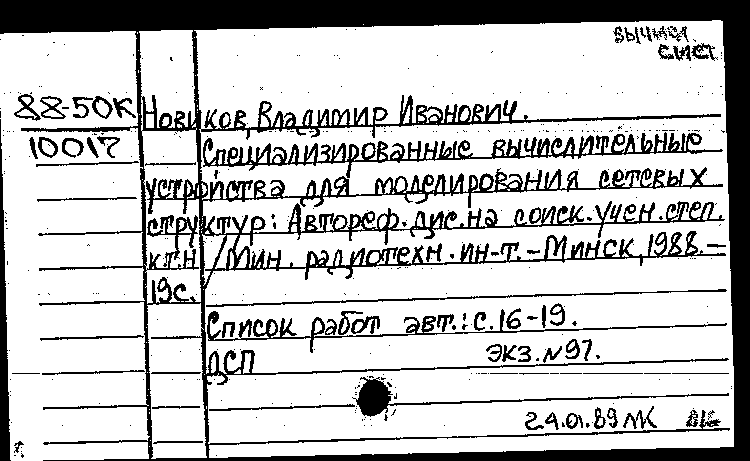 вычисл.
сист
88-50К Новиков, Владимир Иванович.
10017 Специализированные вычислительные
устройства для моделирования сетевых
структур: Автореф. дис. на соиск. учен. степ.
к.т.н. / Мин. радиотехн. ин-т. - Минск, 1988. -
19с.
Список работ авт.: с. 16-19.
ДСП экз. N97.
24.01.89 МК